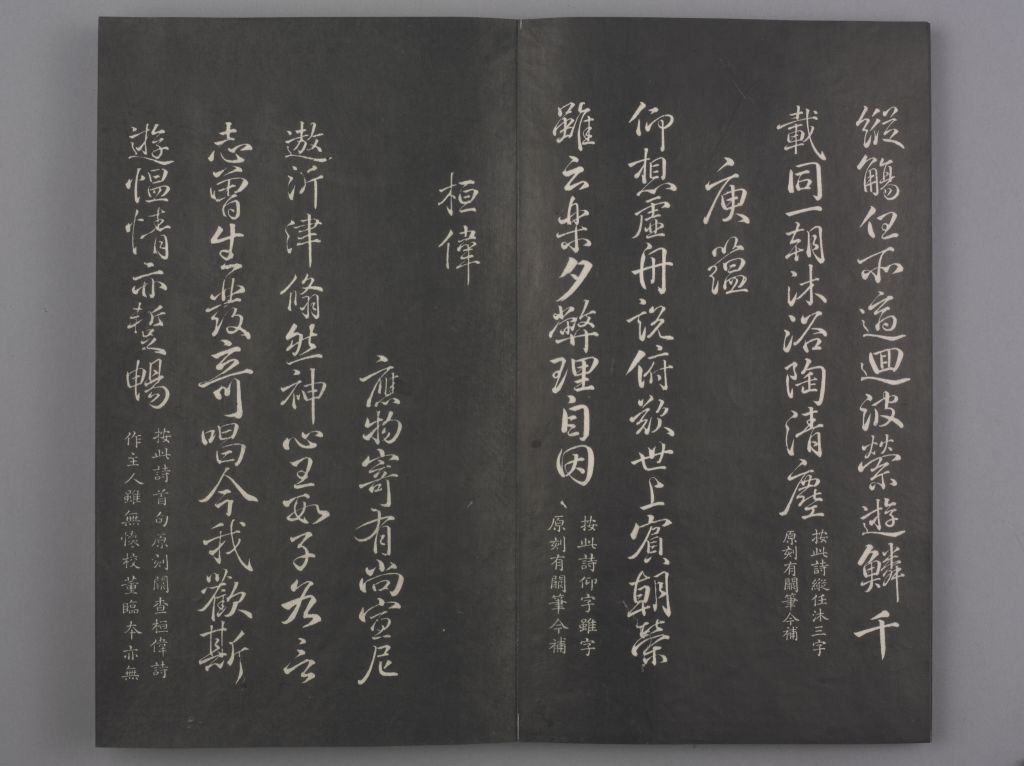 縱觴任所適迴波縈遊鱗千
載同一朝沐浴陶清塵
按此詩縱任沐三字
原刻有闕筆今補
庾蘊
仰想虛舟說俯歎世上賓朝榮
雖云樂夕弊理自因
按此詩仰字雖字
原刻有闕筆今補
桓偉
應物寄有尚宣尼
遨沂津翛然神心王數子各言
志曾生發奇唱今我歡斯
遊慍情亦蹔暢
按此詩首句原刻闕查桓偉詩
作主人雖無懷校董臨本亦無